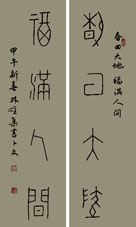 春回大地
春回大地 福满人间
福滿人間
甲午新春林 集書卜文